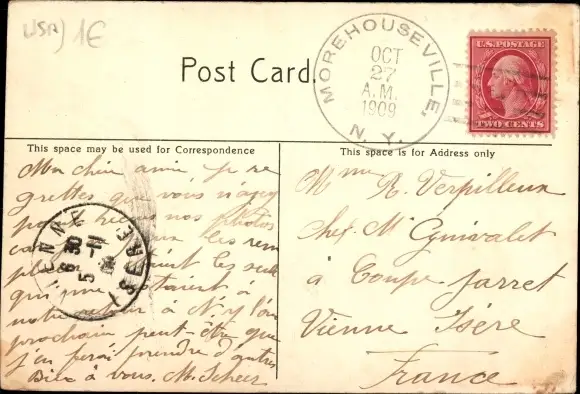 USA) 1€
Post Card.
MOREHOUSEVILLE,
OCT
27
A.M.
1909
N. Y.
U.S. POSTAGE
TWO CENTS
This space may be used for Correspondence
Ma chère amie, je re
grettes que vous n'ayez
pas nos photos
les rem
les seules
qui me à
notre à N.y l'an
prochain peut-être que
j'en ferai prendre d'autres
Bien à vous. M. Scheer
VIENNE
6 30
5 -11
ISERE
This space is for Address only
Mme R. Verpilleux
Chez Mr Gynivalet
à Coupe Jarret
Vienne Isère
France